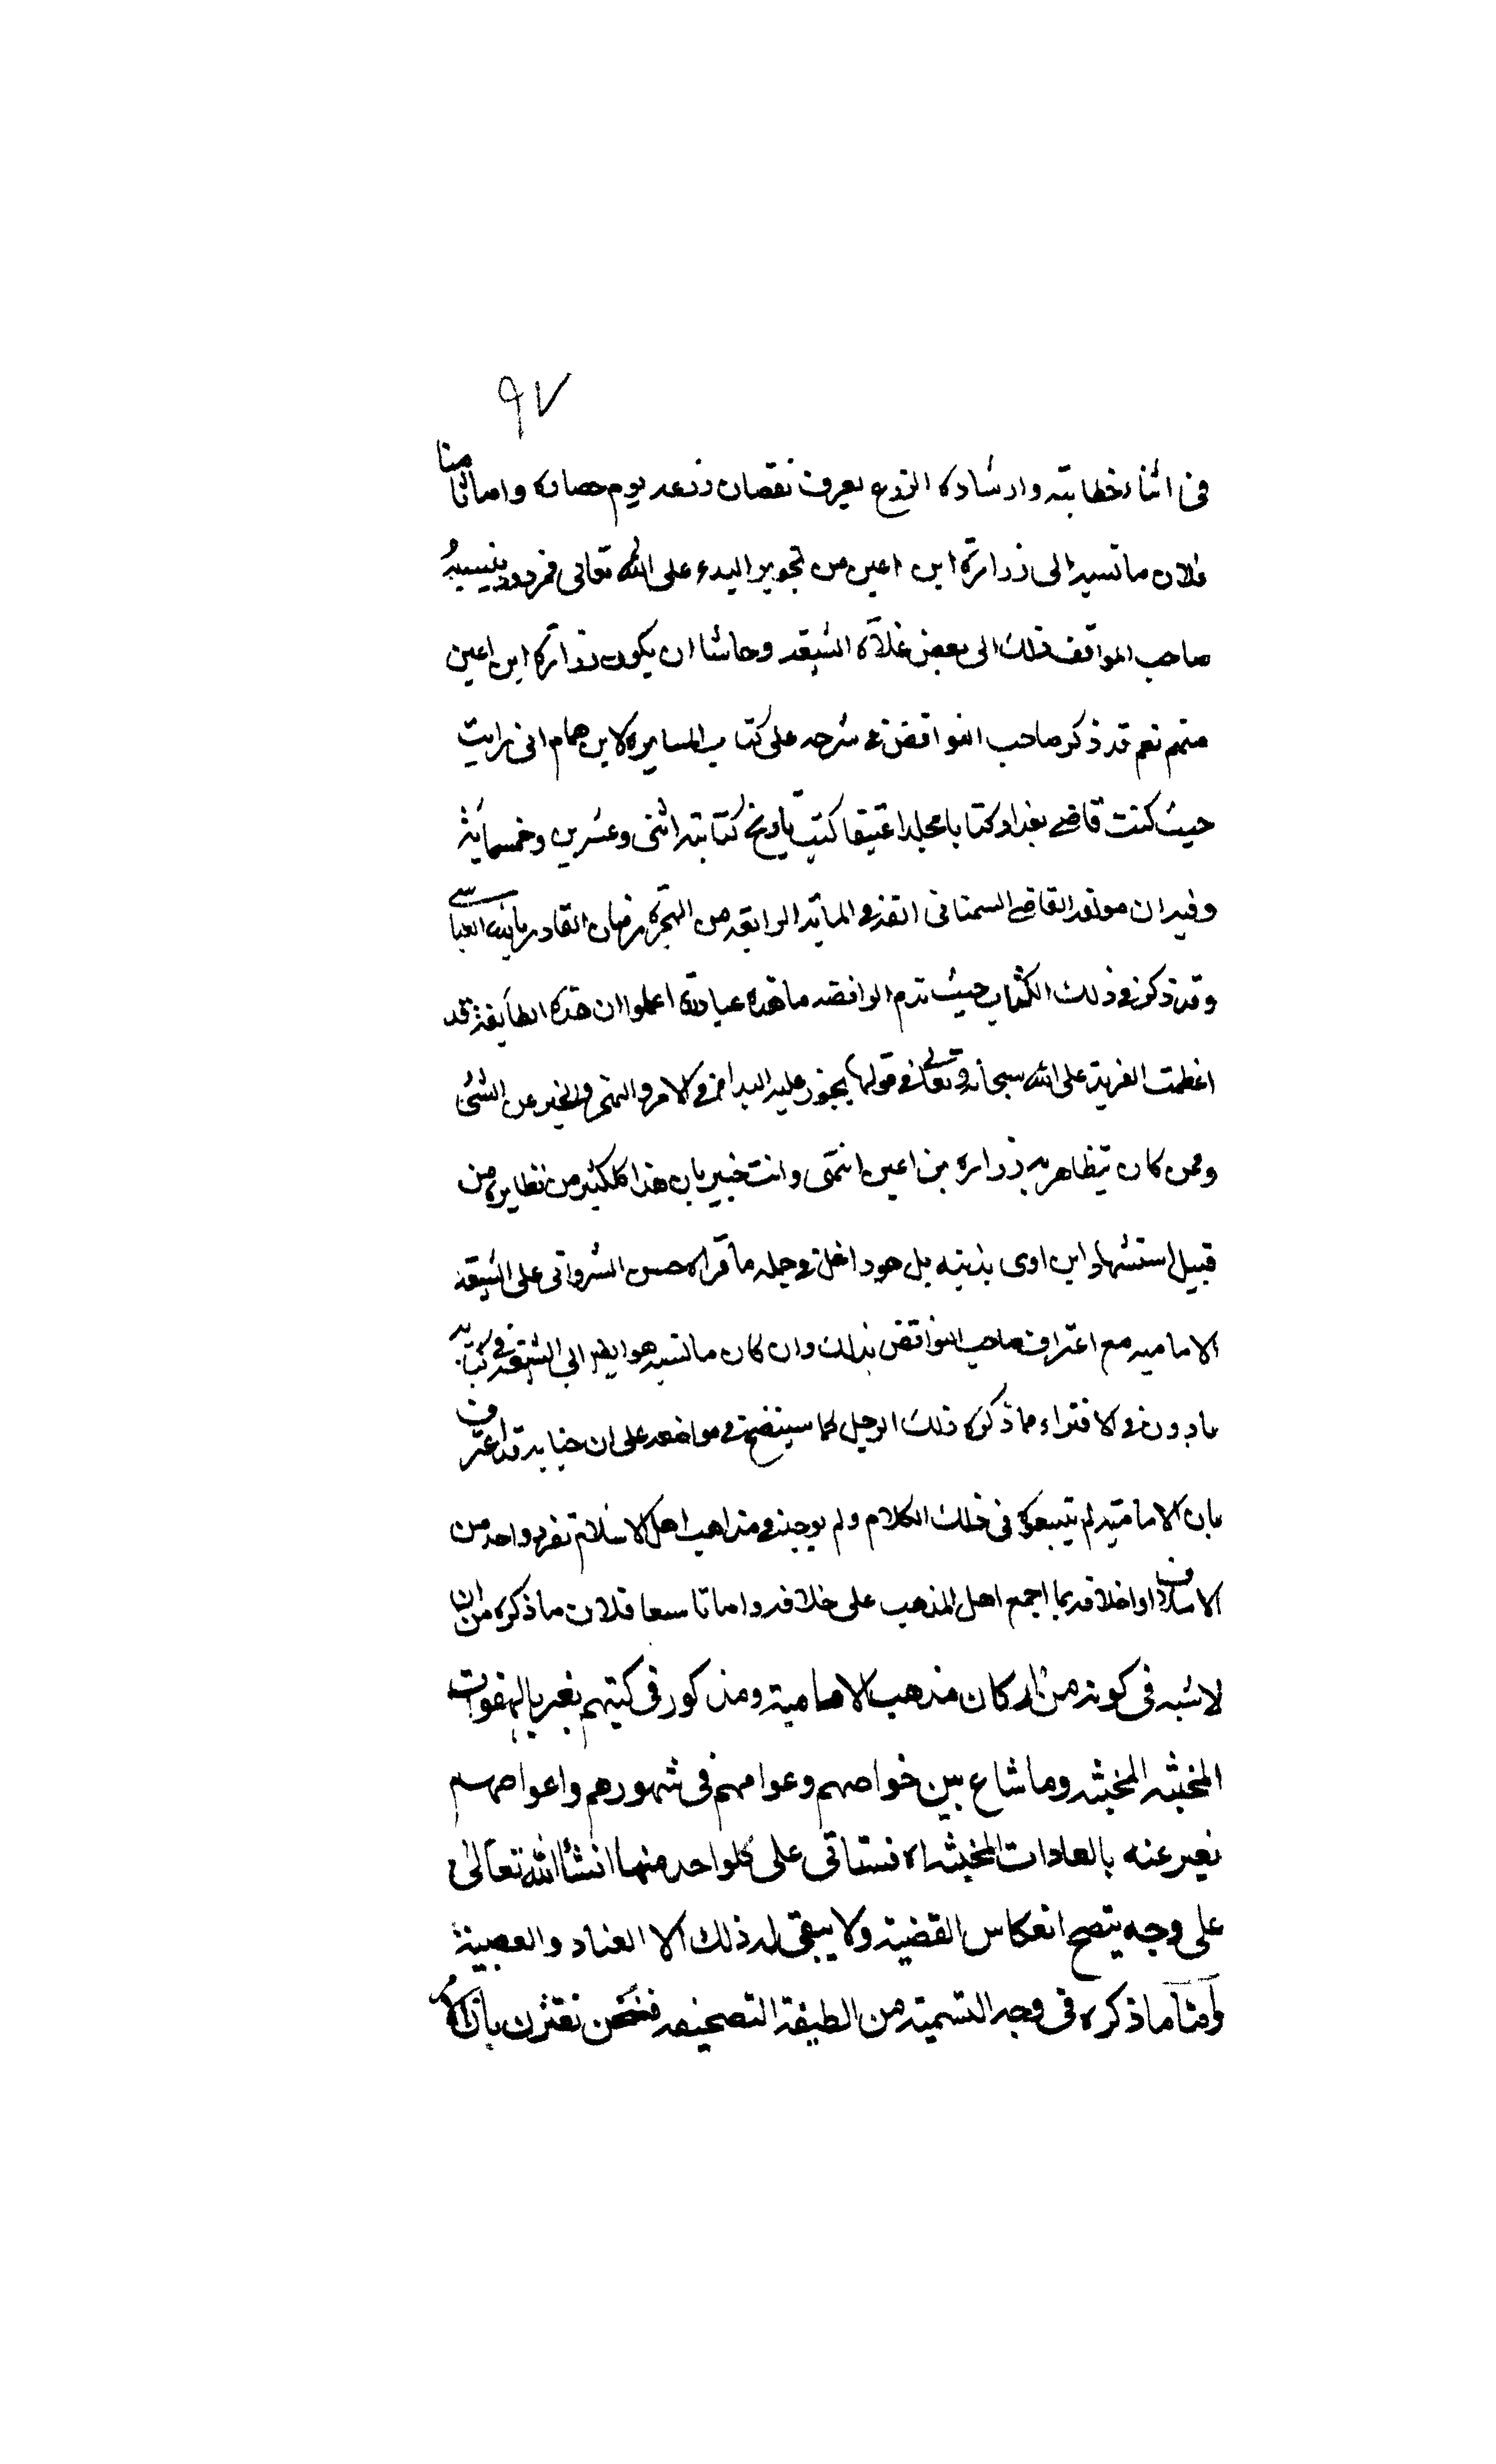 ٩٧
فى اثناء خطابته وارشاده الزرع يعرف نقصان زرعه يوم حصاده واما ثامنا
فلان ما نسبه الى زرارة ابن اعين من تجويز البدء على الله تعالى فمردود بنسبة
صاحب المواقف ذلك الى بعض غلاة الشيعه وحاشا ان يكون زرارة ابن اعين
منهم نعم قد ذكر صاحب النواقض فى شرحه على كتاب المسايره لابن همام انى رايت
حيث كنت قاضى بغداد كتابا مجلدا عتيقا كتب تاريخ كتابته اثنى وعشرين وخمسماية
وفيه ان مولفه القاضى السمنانى الفه فى المائة الرابعه من الهجرة زمان القادر بالله العباسى
وقد ذكر فى ذلك الكتاب حيث تدم الرافضه ما هذه عبارته اعلموا ان هذه الطايفة قد
اعظمت الفرية على الله سبحانه وتعالى فى قولها يجوز عليه البداء فى الامر والنهى والخبر عن الشئ
وممن كان يتظاهر به زراره بن اعين انتهى وانت خبير بان هذا ككثير من نظايره من
قبيل استشهاد ابن اوى بذنبه بل هو داخل فى جمله ما قراه حسن الشروانى على الشيعه
الاماميه مع اعتراف صاحب النواقض بذلك وان كان ما نسبه هو ايضا الى الشيعه فى كتابه
بادون فى الافتراء مما ذكره ذلك الرجل كما سيتضح فى مواضعه على ان جنابه قد اعترف
بان الامامية لم يتبعوه فى ذلك الكلام ولم يوجد فى مذاهب اهل الاسلام تفرد واحد من
الاسلاف او اخلافه بما اجمع اهل المذهب على خلافه واما تاسعا فلان ما ذكره من ان
لا شبه فى كونه من اركان مذهب الامامية ومذكور فى كتبهم نعبر بالهفوات
المخبثه المخبثه وما شاع بين خواصهم وعوامهم فى شهورهم واعوامهم
نعبر عنه بالعادات المخبثه اه فسناتى على كلواحد منها انشاالله تعالى
على وجه يتضح انعكاس القضية ولا يبقى له ذلك الا العناد والعصبية
وأما ما ذكره فى وجه التسمية من اللطيفة التصحيفه فنحن نعترف بأن الامر